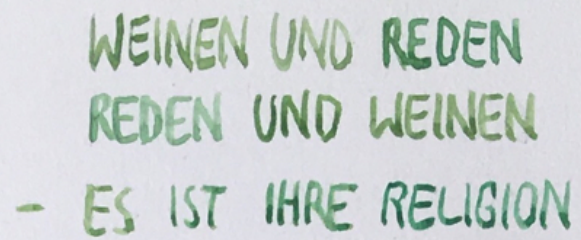 WEINEN UND REDEN
REDEN UND WEINEN
- ES IST IHRE RELIGION